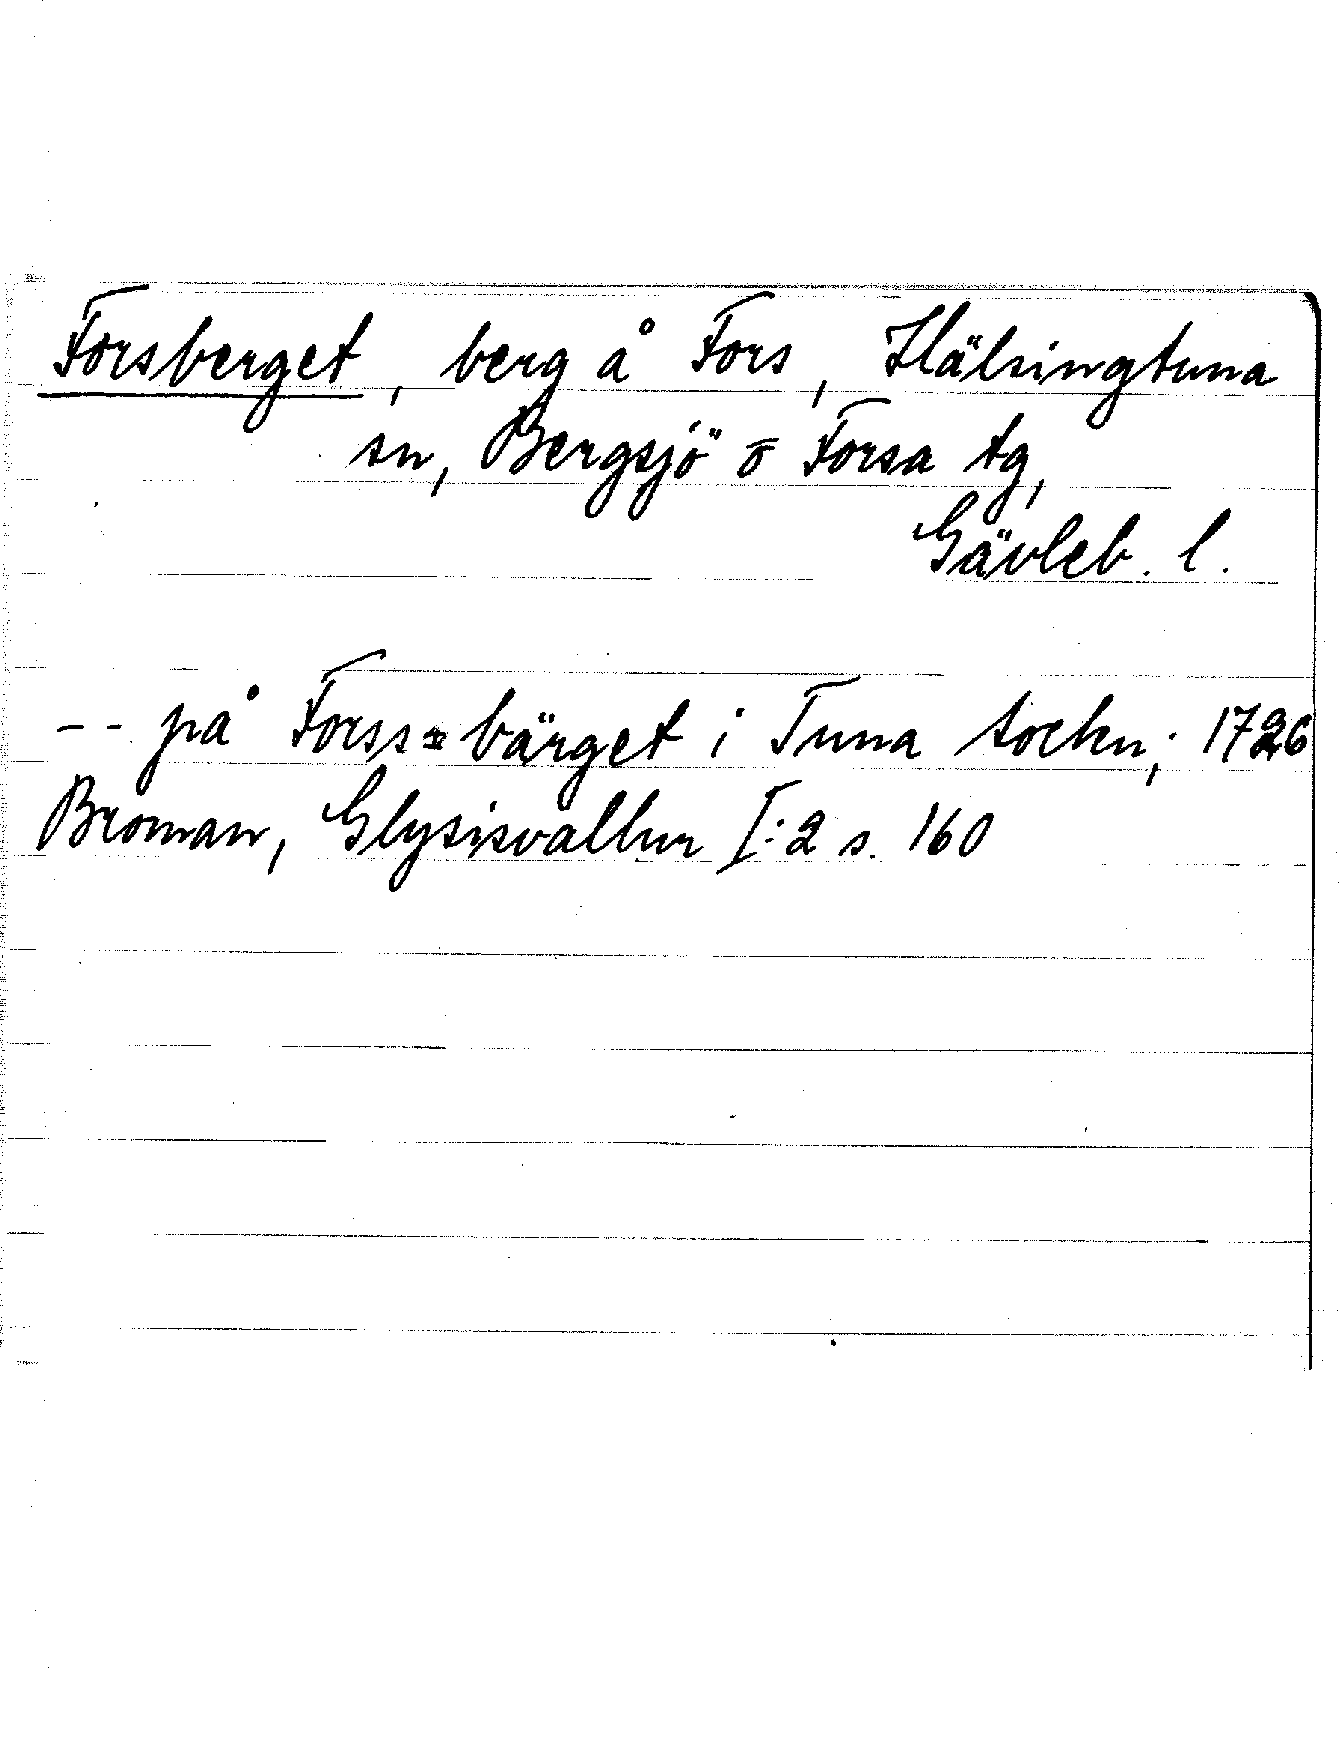 Forsberget, berg å Fors, Hälsingtuna
sn, Bergsjö o Forsa tg,
Gävleb. l.
-- på Forss=bärget i Tuna sockn; 1726
Broman, Glysisvallur I:2 s. 160